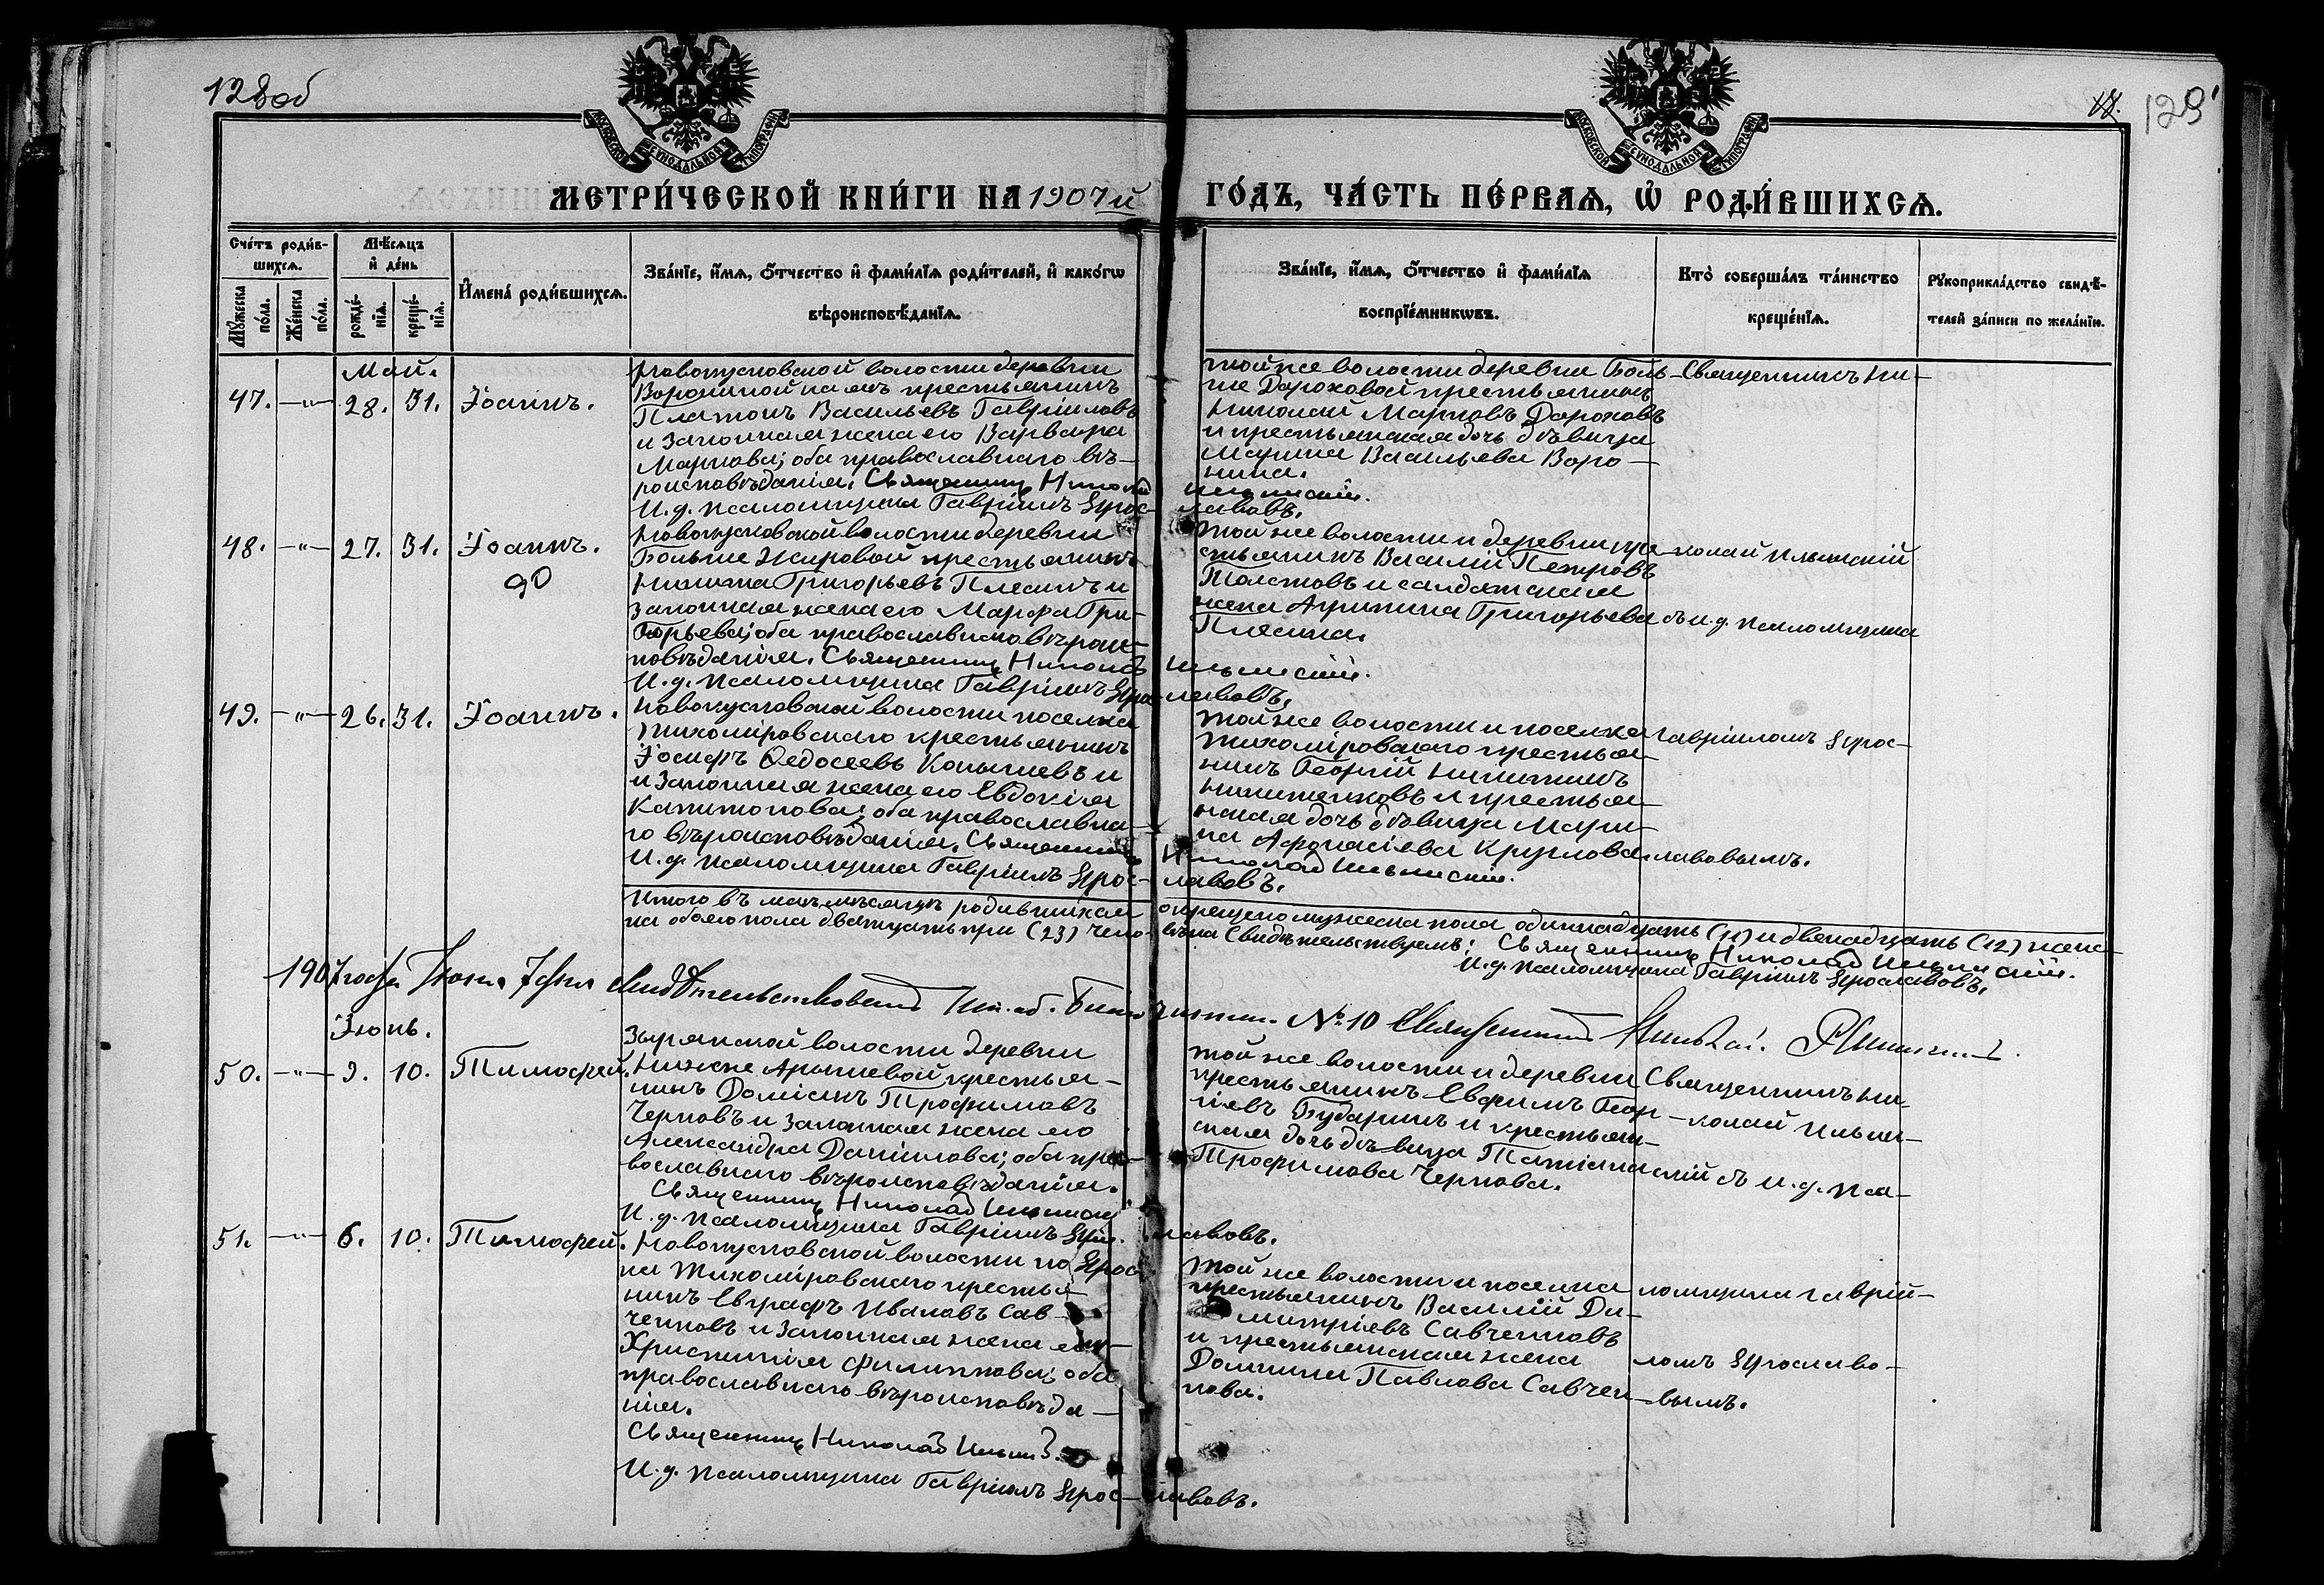 128об
18. 129
МОСКОВСКОЙ СУНОДАЛЬНОЙ ТИПОГРАФІИ
МОСКОВСКОЙ СУНОДАЛЬНОЙ ТИПОГРАФІИ
МЕТРИ́ЧЕСКОЙ КНИ́ГИ НА 1907й ГО́ДЪ, ЧА́СТЬ ПЕ́РВАЯ, Ѡ РОДИ́ВШИХСЯ.
Сче́тъ роди́в-
шихся.
Мꙋ́жеска по́ла.
Же́нска по́ла.
Мѣ́сяцъ
и де́нь
рожде́-
нїя.
креще́-
нїя.
И҆мена̀ роди́вшихся.
Зва́нїе, и҆́мя, ѻ҆́тчество и҆ фами́лїя роди́телей, и҆ како́гѡ
вѣроисповѣ́данїя.
Зва́нїе, и҆́мя, ѻ҆́тчество и҆ фами́лїя
воспрїе́мникѡвъ.
Кто̀ соверша́лъ та́инство
креще́нїя.
Рꙋкоприкла́дство свидѣ́-
телей за́писи по жела́нїю.
Май.
47. —"— 28. 31. Іоаннъ.
Новокусковской волости деревни
Ворониной пашъ крестьянинъ
Платонъ Васильевъ Гавріиловъ
и законная жена его Варвара
Маркова; оба православнаго вѣ-
роисповѣданія. Священникъ Николай Ильинскій.
И. д. псаломщика Гавріилъ Ярос-лавовъ.
той же волости деревни Боль-
ше Дороховой крестьянинъ
Николай Марковъ Дороховъ
и крестьянская дочь дѣвица
Марина Васильева Воро-
нина.
Священникъ Ни-
48. —"— 27. 31. Іоаннъ.
Новокусковской волости деревни
Больше Жировой крестьянинъ
Никита Григорьевъ Плесинъ и
законная жена его Марфа Гри-
горьева; оба православнаго вѣроис-
повѣданія. Священникъ Николай Ильинскій.
И. д. псаломщика Гавріилъ Яро-славовъ.
той же волости и деревни кре-
стьянинъ Василій Петровъ
Толстовъ и солдатская
жена Агрипина Григорьева
Плесина.
колай Ильинскій
съ и. д. псаломщика
49. —"— 26. 31. Іоаннъ.
Новокусковской волости поселка
Тихоміровскаго крестьянинъ
Іосифъ Ѳедосеевъ Копышевъ и
и законная жена его Евдокія
Капитонова; оба православна-
го вѣроисповѣданія. Священникъ Николай Ильинскій.
И. д. псаломщика Гавріилъ Ярос-лавовъ.
той же волости и поселка
Тихоміровскаго крестья-
нинъ Георгій Никитинъ
Никитенковъ и крестьян-
ская дочь дѣвица Мари-
на Афонасіева Круглова.
Гавріиломъ Ярос-
лавовымъ.
Итого въ маѣ мѣсяцѣ родившихся и крещено мужеска пола одиннадцать (11) и двенадцать (12) женс-
ка обоего пола двадцать три (23) чело-вѣка Свидѣтельствуемъ: Священникъ Николай Ильинскій.
И. д. псаломщика Гавріилъ Ярославовъ.
1907 года Іюня 7 дня свидѣтельствовалъ № 10 Священникъ Николай
Іюнь.
50. —"— 9. 10. Тимофей.
Зырянской волости деревни
Нижне Арышевой крестья-
нинъ Доміанъ Трофимовъ
Черновъ и законная жена его
Александра Даніилова; оба пра-
вославнаго вѣроисповѣданія.
Священникъ Николай Ильинскій
И. д. псаломщика Гавріилъ Яро-славовъ.
той же волости и деревни
крестьянинъ Евфимъ Геор-
гіевъ Бударинъ и крестьян-
ская дочь дѣвица Татіана
Трофимова Чернова.
Священникъ Ни-
колай Ильин-
скій съ и. д. пса-
51. —"— 6. 10. Тимофей.
Новокусковской волости по
ка Тихоміровскаго крестья-
нинъ Евграфъ Ивановъ Сав-
ченковъ и законная жена его
Христинія Филиппова; оба
православнаго вѣроисповѣда-
нія.
Священникъ Николай Ильин
И. д. псаломщика Гавріилъ Ярос-лавовъ.
той же волости и поселка
крестьянинъ Василій Ди-
митріевъ Савченковъ
и крестьянская жена
Домника Павлова Савчен-
кова.
ломщика Гаврій-
ломъ Ярославо-
вымъ.